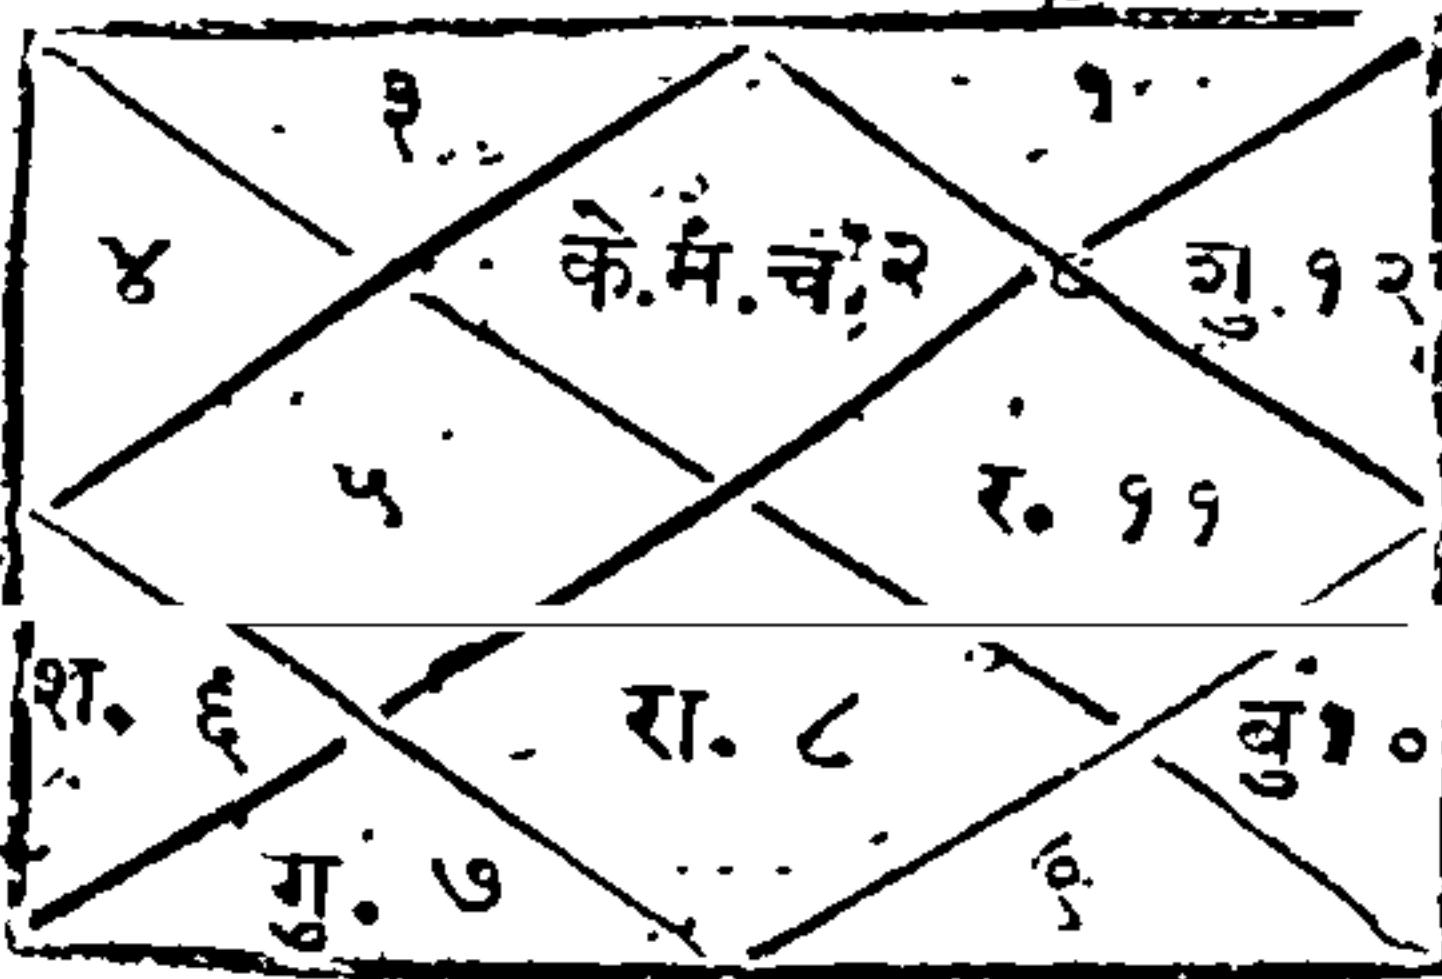 ३ १
४ के. मं. चं. २ शु. १२
५ र. ११
श. ६ रा. ८ बु १०
गु. ७ ९